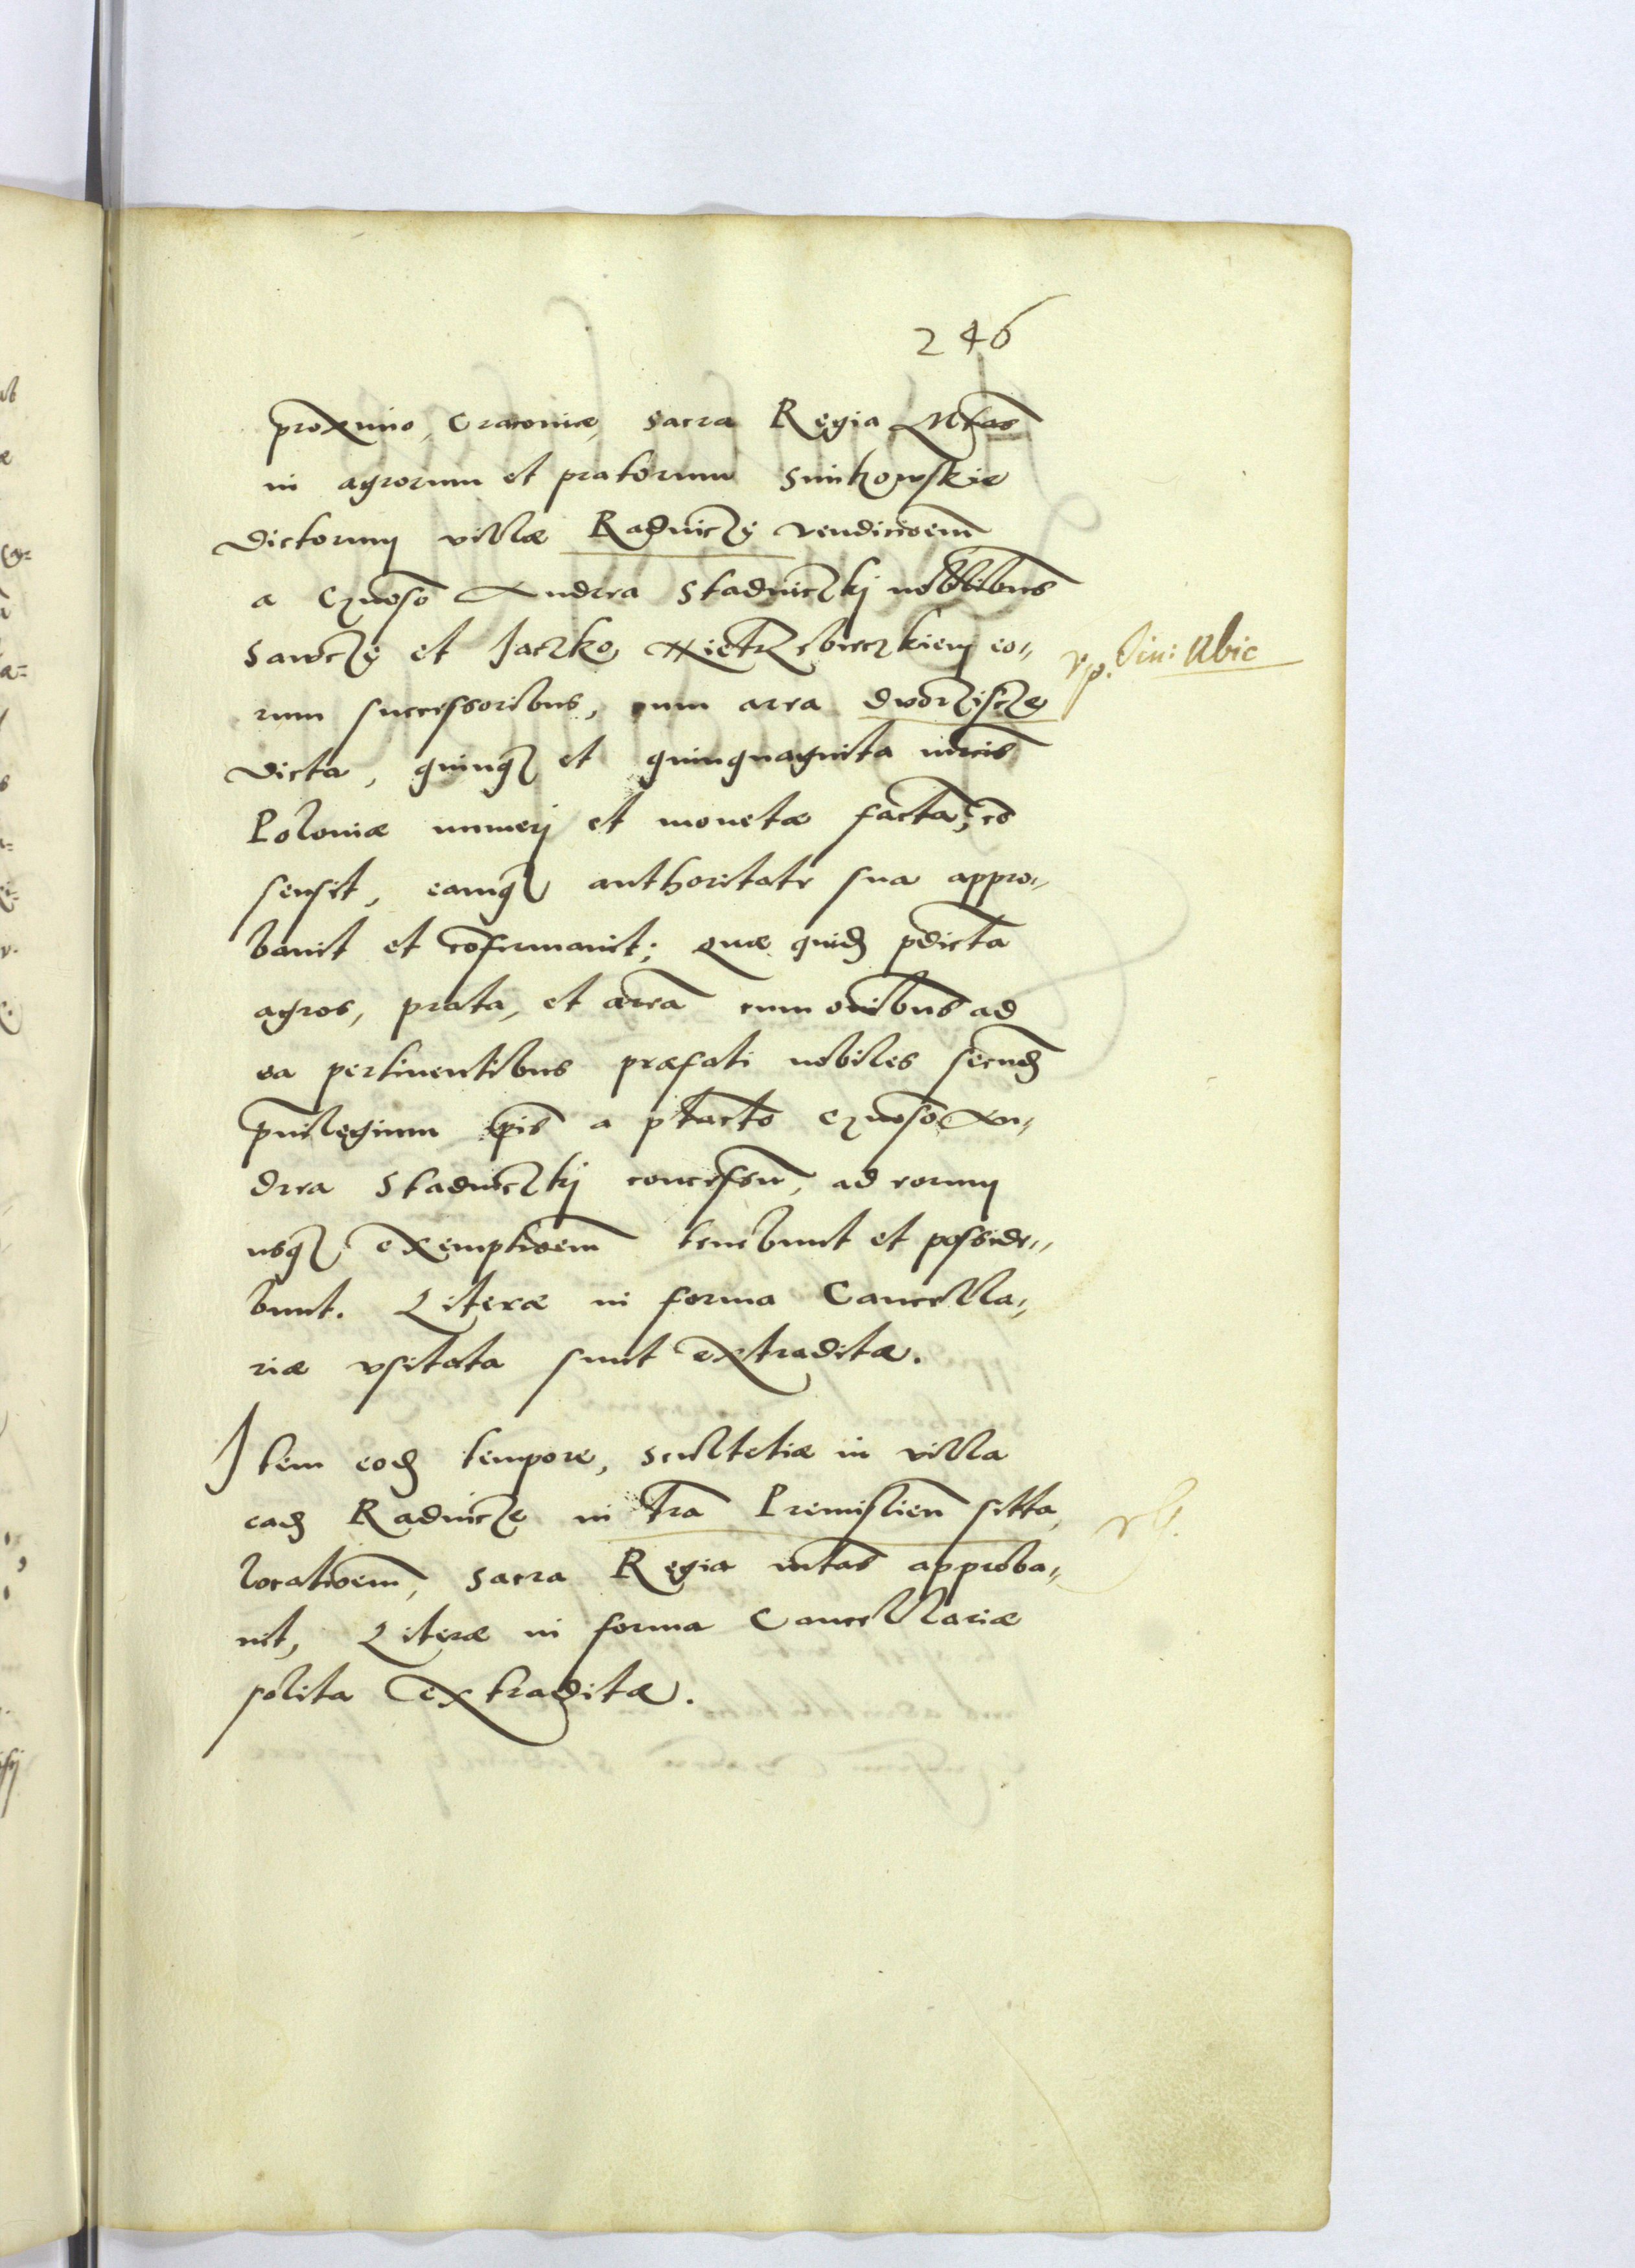 246
proximo, Cracoviæ, Sacra Regia Mtas
in agrorum et pratorum Smikowskie
dictorum villæ Radnicze vendicioem
a Gnoso Andrea Stadniczkj nobilibus
Sawczy et Jaczko eo„
rum successoribus, cum area dworziscze
dicta, quinq et quinquaginta mrcis
Poloniæ numeri et monetæ facta, co
sensit, eamq authoritate sua appro„
bauit et cōfirmauit; quæ quid pdicta
agros, prata, et area cum oībus ad
ea pertinentibus præfati nobiles secund
priuilegium ipis a ptacto Gnoso An„
drea Stadniczkj concessu, ad eorum
usq exemptioem tenebunt et posside„
bunt. Literæ in forma Cancella„
riæ vsitata sunt extraditæ.
Item eod tempore, scultetiæ in villa
ead Radnicze in tra Premislien sitta,
locatioem, Sacra Regia mtas approba„
uit, Literæ in forma Cancellariæ
solita extraditæ.